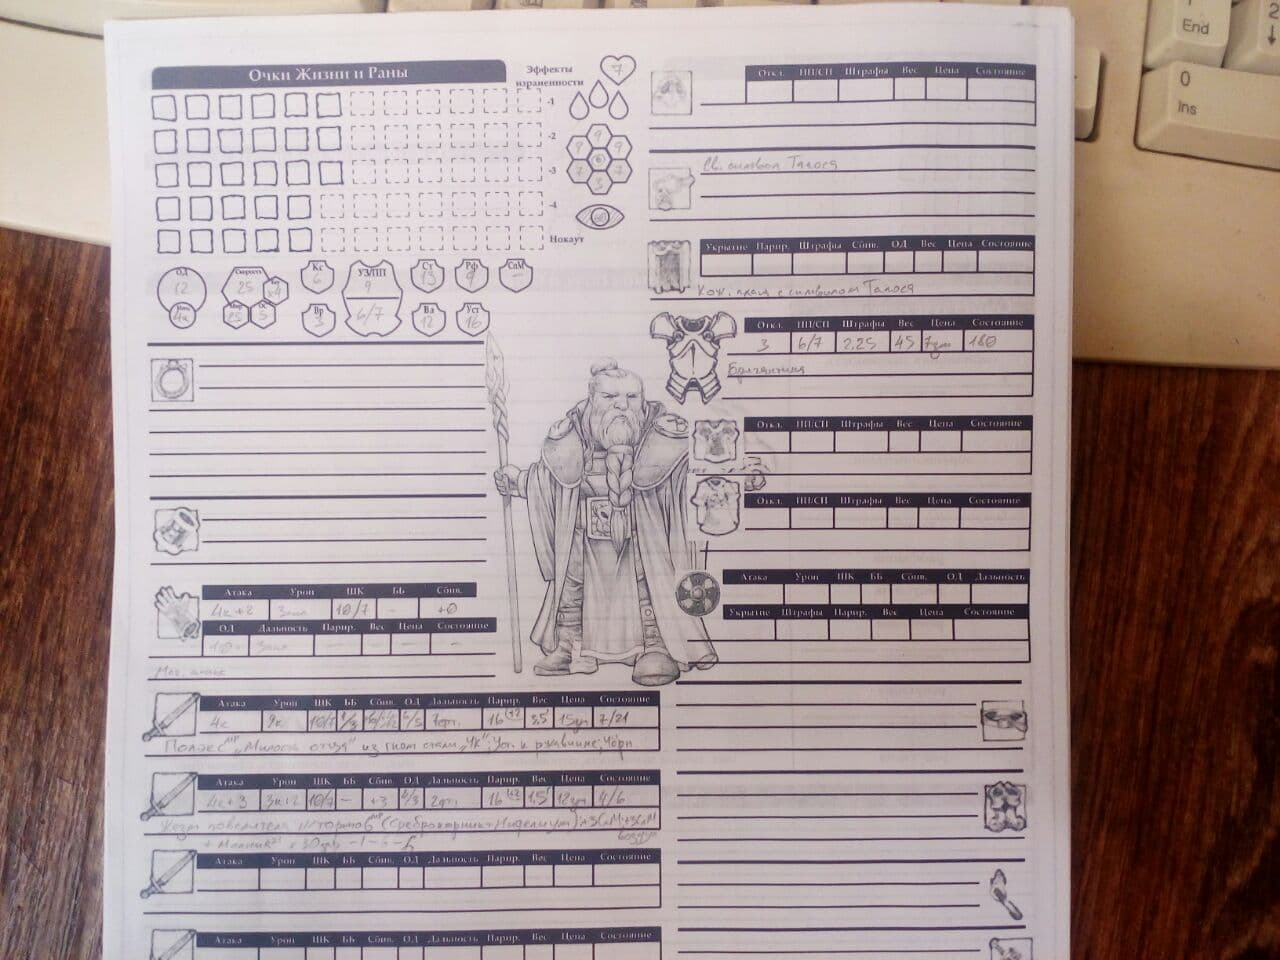 Очки Жизни и Раны
Эффекты
израненности
7
-1
-2
-3
-4
Нокаут
9
9 9
7 7
3
ОД
12
4к
Скорость
25
x4
25
5
Кс
6
Вр
3
УЗ/ПП
9
6/7
Ст
13
Рф
9
СпМ
-
Ва
12
Уст
16
Атака Урон ШК ББ Сбив.
4к+2 10/7 - +0
ОД Дальность Парир. Вес Цена Состояние
- - - -
Атака Урон ШК ББ Сбив. ОД Дальность Парир. Вес Цена Состояние
4к 10/7 16 +2 7/21
"Милость отца" из гном стали "ЧК"; Уст. к ржавчине;
Атака Урон ШК ББ Сбив. ОД Дальность Парир. Вес Цена Состояние
4к+3 3к+2 10/7 - +3 16 +2 1,5 4/6
повелителя штормов
воздух
Атака Урон ШК ББ Сбив. ОД Дальность Парир. Вес Цена Состояние
Атака Урон ШК ББ Сбив. ОД Дальность Парир. Вес Цена Состояние
Откл. ПП/СП Штрафы Вес Цена Состояние
Св. символ Талоса
Укрытие Парир. Штрафы Сбив. ОД Вес Цена Состояние
Кож. плащ с символом Талоса
Откл. ПП/СП Штрафы Вес Цена Состояние
3 6/7 2.25 45 180
Бригантина
Откл. ПП/СП Штрафы Вес Цена Состояние
Откл. ПП/СП Штрафы Вес Цена Состояние
Атака Урон ШК ББ Сбив. ОД Дальность
Укрытие Штрафы Парир. Вес Цена Состояние
End
0
Ins
2